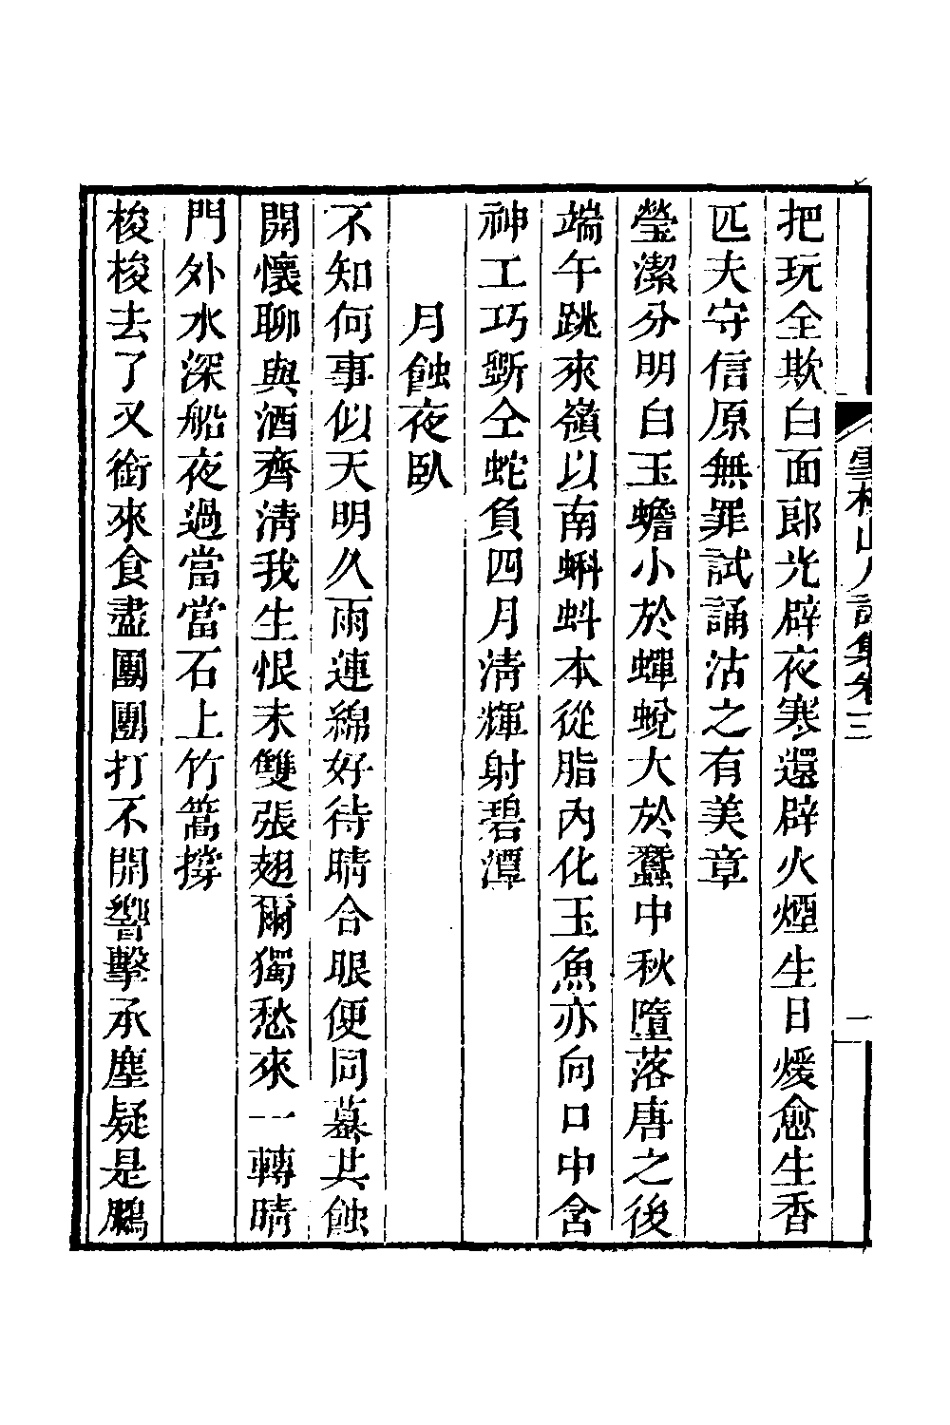 山人詩集卷三
一
把玩全欺白面郎光辟夜寒還辟火煙生日煖愈生香
匹夫守信原無罪試誦沽之有美章
瑩潔分明白玉蟾小於蟬蛻大於蠶中秋墮落唐之後
端午跳來嶺以南蝌蚪本從脂內化玉魚亦向口中含
神工巧斲仝蛇負四月淸輝射碧潭
月蝕夜臥
不知何事似天明久雨連綿好待晴合眼便同蟇共蝕
開懷聊與酒齊淸我生恨未雙張翅爾獨愁來一轉睛
門外水深船夜過當當石上竹篙撐
梭梭去了又銜來食盡團團打不開響擊承塵疑是鵩